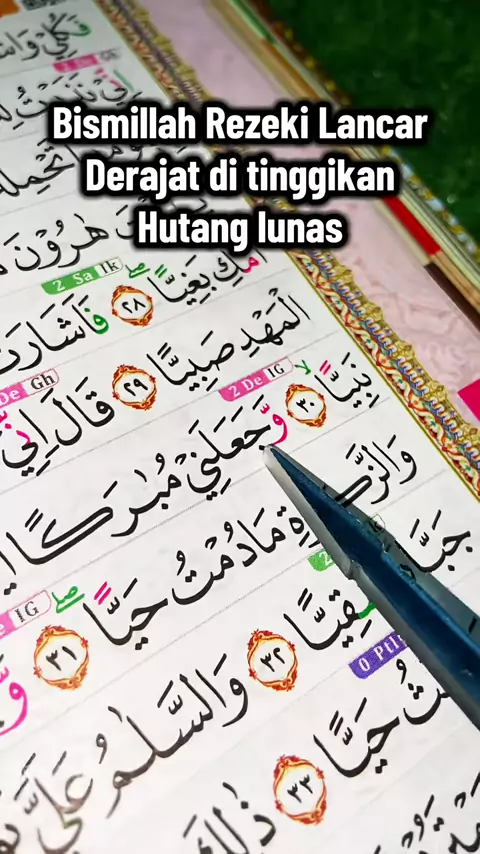 Bismillah Rezeki Lancar
Derajat di tinggikan
Hutang lunas
فَكُلِيْ
نَذَرْتُ
هٰرُوْنَ
2 Sa Ik
بَغِيًّا ۖ ٢٨ فَاَشَارَتْ
De Gh
الْمَهْدِ صَبِيًّا ٢٩ قَالَ اِنِّيْ
2 De IG
نَبِيًّا ۙ ٣٠ وَّجَعَلَنِيْ مُبٰرَكًا
مَا دُمْتُ حَيًّا ۖ ٣١ وَّ
IG
٣٢ وَالسَّلٰمُ عَلَيَّ
0 Ptl
حَيًّا ٣٣ ذٰلِكَ